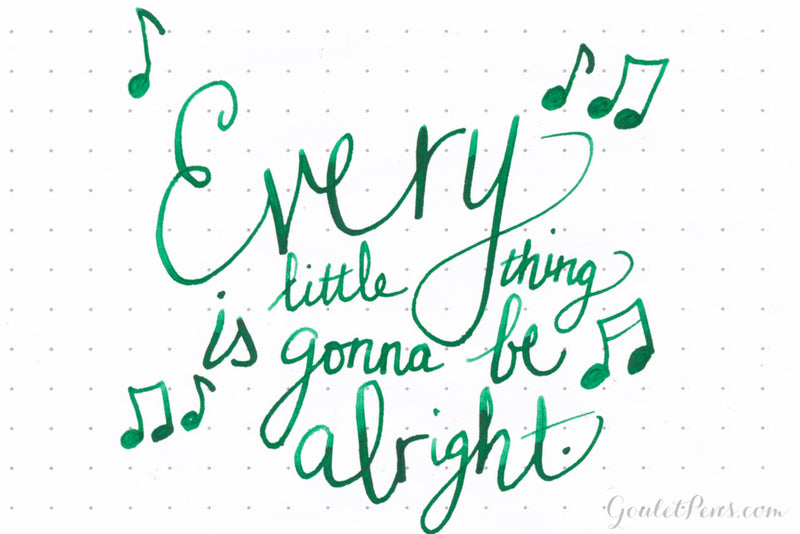 Every
little thing
is gonna be
alright.
GouletPens.com